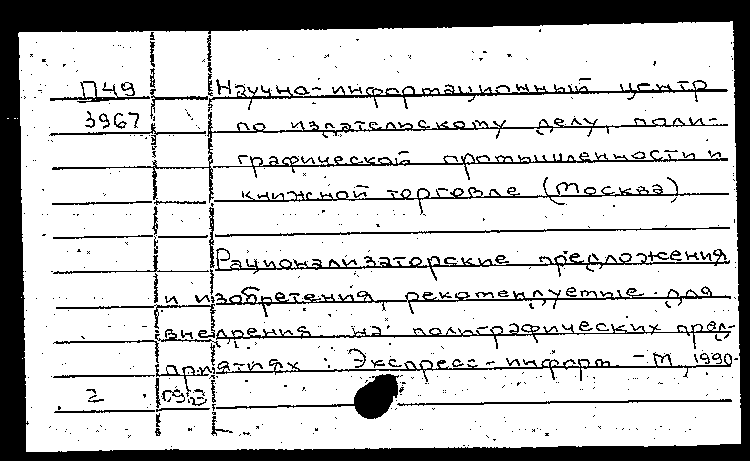 П49 Научно-информационный центр
3967 по издательскому делу, поли-
графической промышленности и
книжной торговле (Москва)
Рационализаторские предложения
и изобретения, рекомендуемые для
внедрения на полиграфических пред-
приятиях : Экспресс-информ. - М., 1990-
2